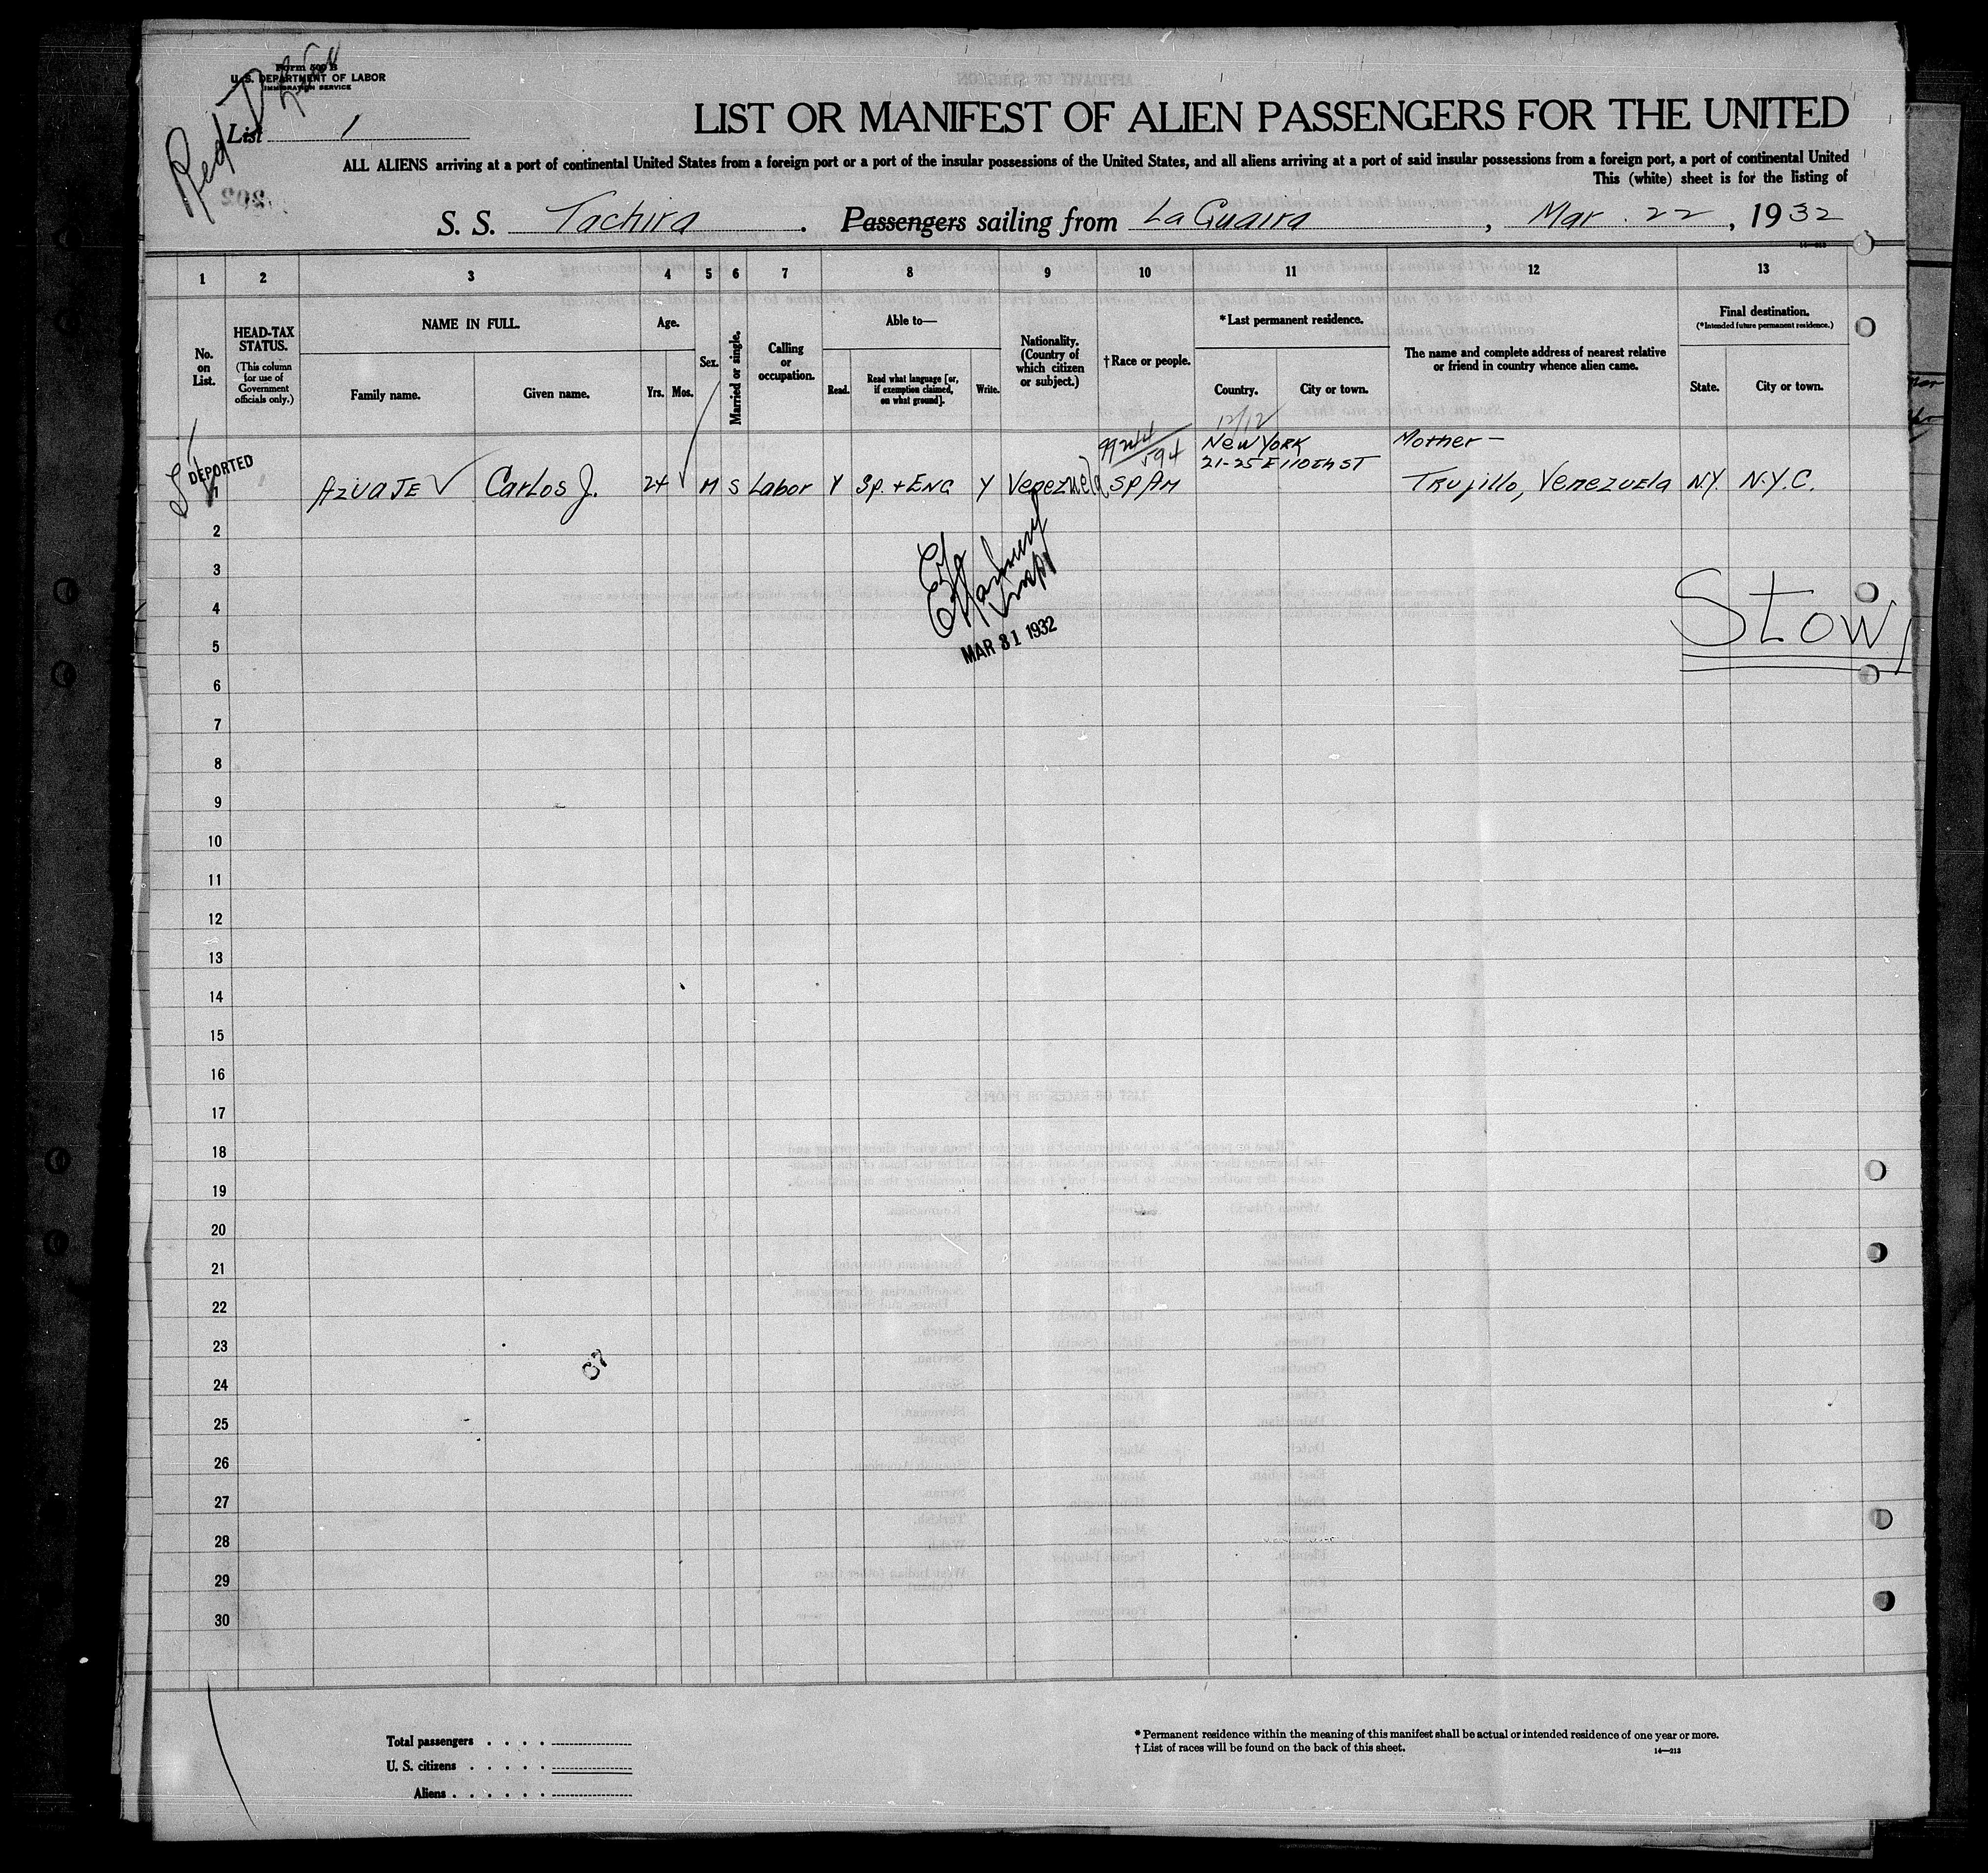 Form 500 B
U. S. DEPARTMENT OF LABOR
IMMIGRATION SERVICE
Red D Line
List 1
LIST OR MANIFEST OF ALIEN PASSENGERS FOR THE UNITED
ALL ALIENS arriving at a port of continental United States from a foreign port or a port of the insular possessions of the United States, and all aliens arriving at a port of said insular possessions from a foreign port, a port of continental United
This (white) sheet is for the listing of
S. S. Tachira . Passengers sailing from La Guaira , Mar. 22 , 1932
1 2 3 4 5 6 7 8 9 10 11 12 13
No. on List.
HEAD-TAX STATUS.
(This column for use of Government officials only.)
NAME IN FULL.
Family name.
Given name.
Age.
Yrs. Mos.
Sex.
Married or single.
Calling or occupation.
Able to—
Read.
Read what language [or, if exemption claimed, on what ground].
Write.
Nationality. (Country of which citizen or subject.)
† Race or people.
* Last permanent residence.
Country.
City or town.
The name and complete address of nearest relative or friend in country whence alien came.
Final destination.
(* Intended future permanent residence.)
State.
City or town.
12/12
New York
21-25 E 110th ST
Mother —
DEPORTED
1 AZUAJE Carlos J. 24 M S Labor Y Sp. + ENG Y Venezuela SPAM Trujillo, Venezuela N.Y. N.Y.C.
2
3
4
Stow
MAR 31 1932
5
6
7
8
9
10
11
12
13
14
15
16
17
18
19
20
21
22
23
24
25
26
27
28
29
30
Total passengers . . . .
U. S. citizens . . . . .
Aliens . . . . . .
* Permanent residence within the meaning of this manifest shall be actual or intended residence of one year or more.
† List of races will be found on the back of this sheet.
14—213